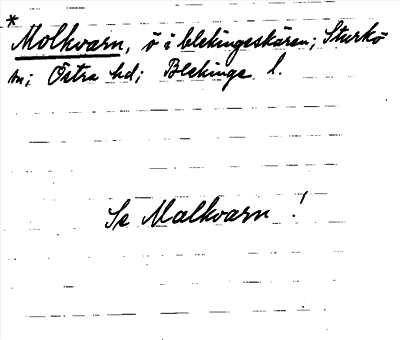 *
Molkvarn, ö i blekingeskären; Sturkö
sn; Östra hd; Blekinge l.
Se Malkvarn!